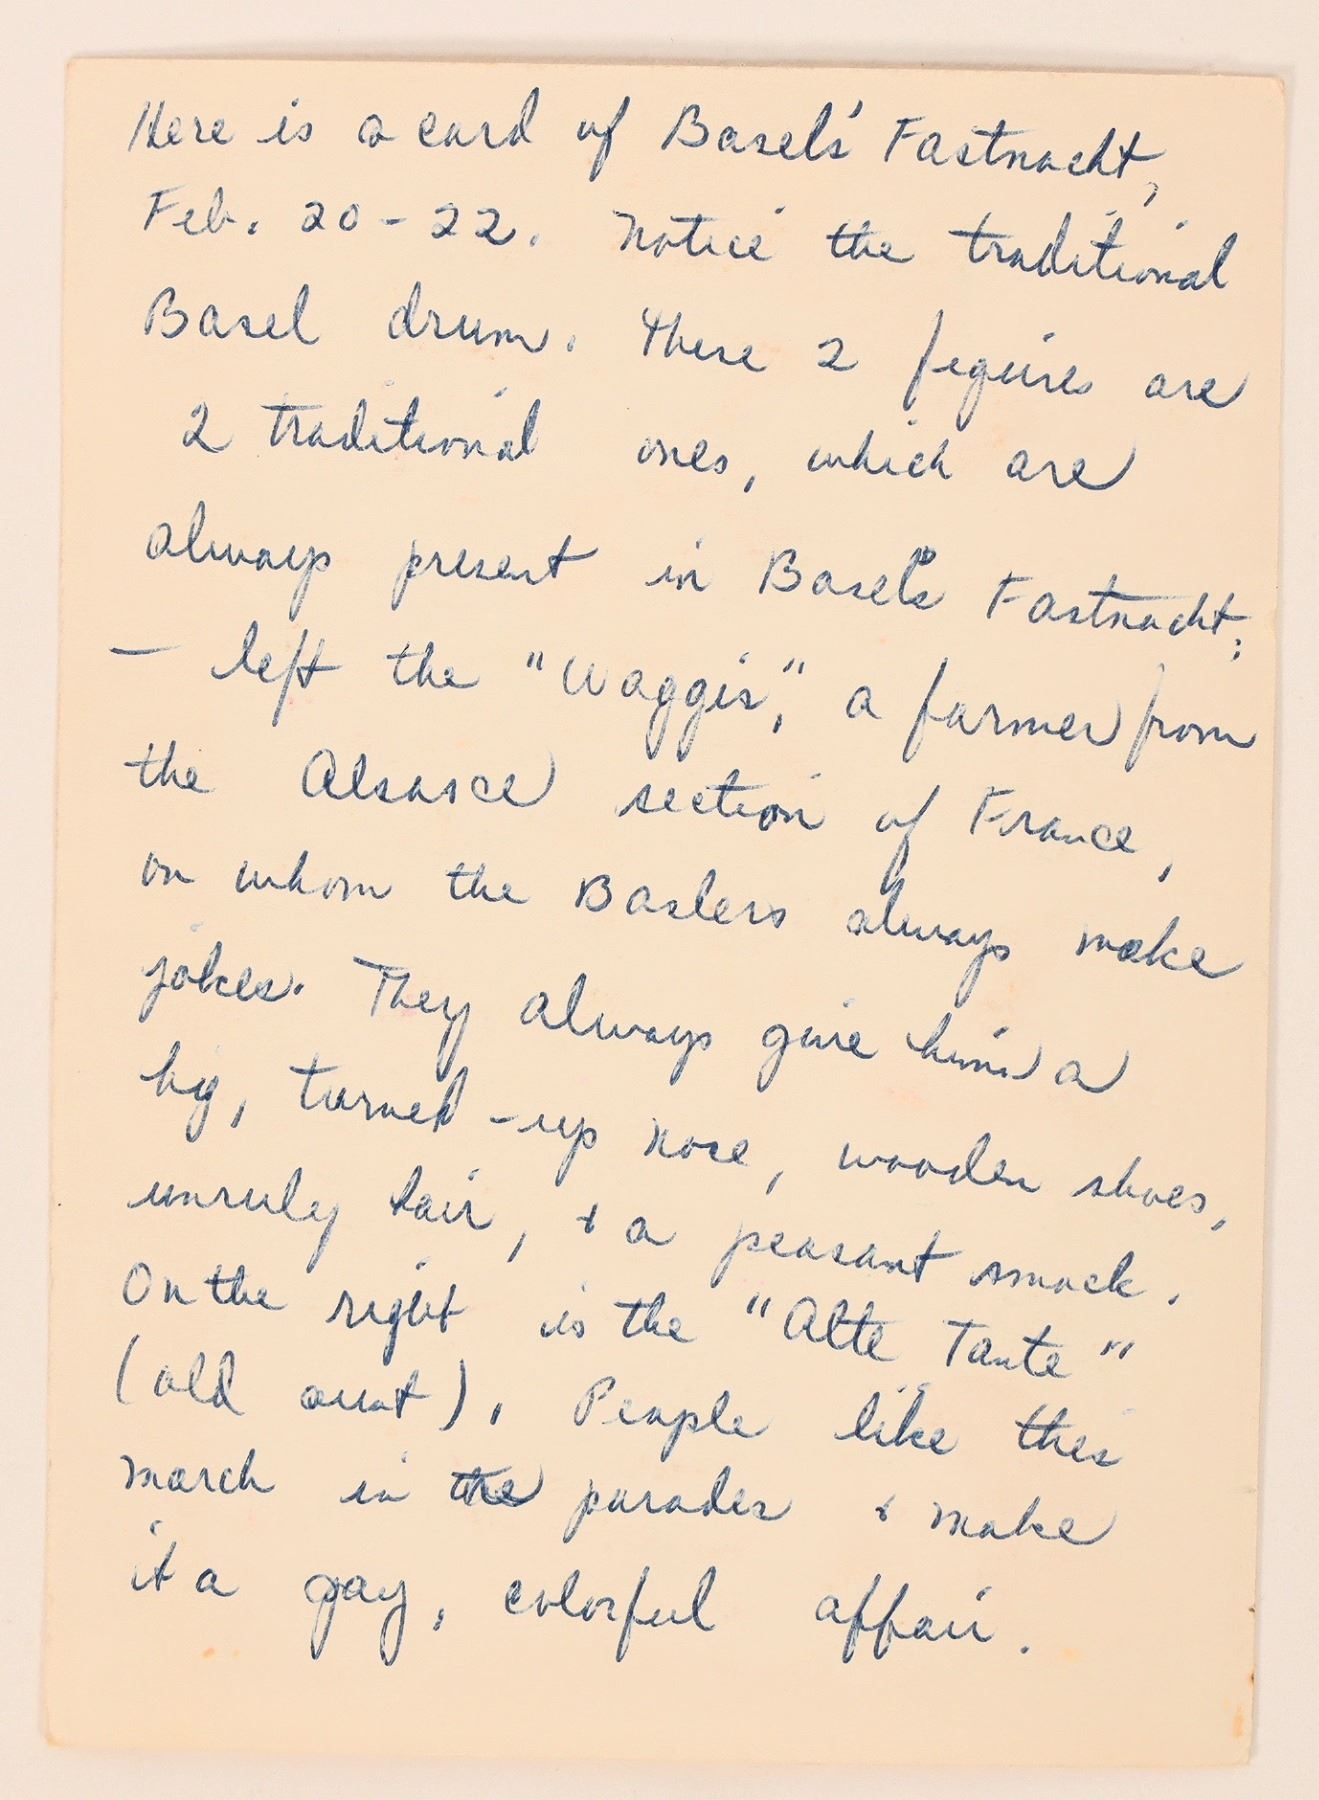 Here is a card of Basel's Fastnacht,
Feb. 20-22. Notice the traditional
Basel drum. These 2 figures are
2 traditional ones, which are
always present in Basel's Fastnacht;
- left the "Waggis," a farmer from
the Alsasce section of France,
on whom the Baslers always make
jokes. They always give him a
big, turned-up nose, wooden shoes,
unruly hair, & a peasant smock.
On the right is the "Alte Tante"
(old aunt). People like this
march in the parades & make
it a gay, colorful affair.